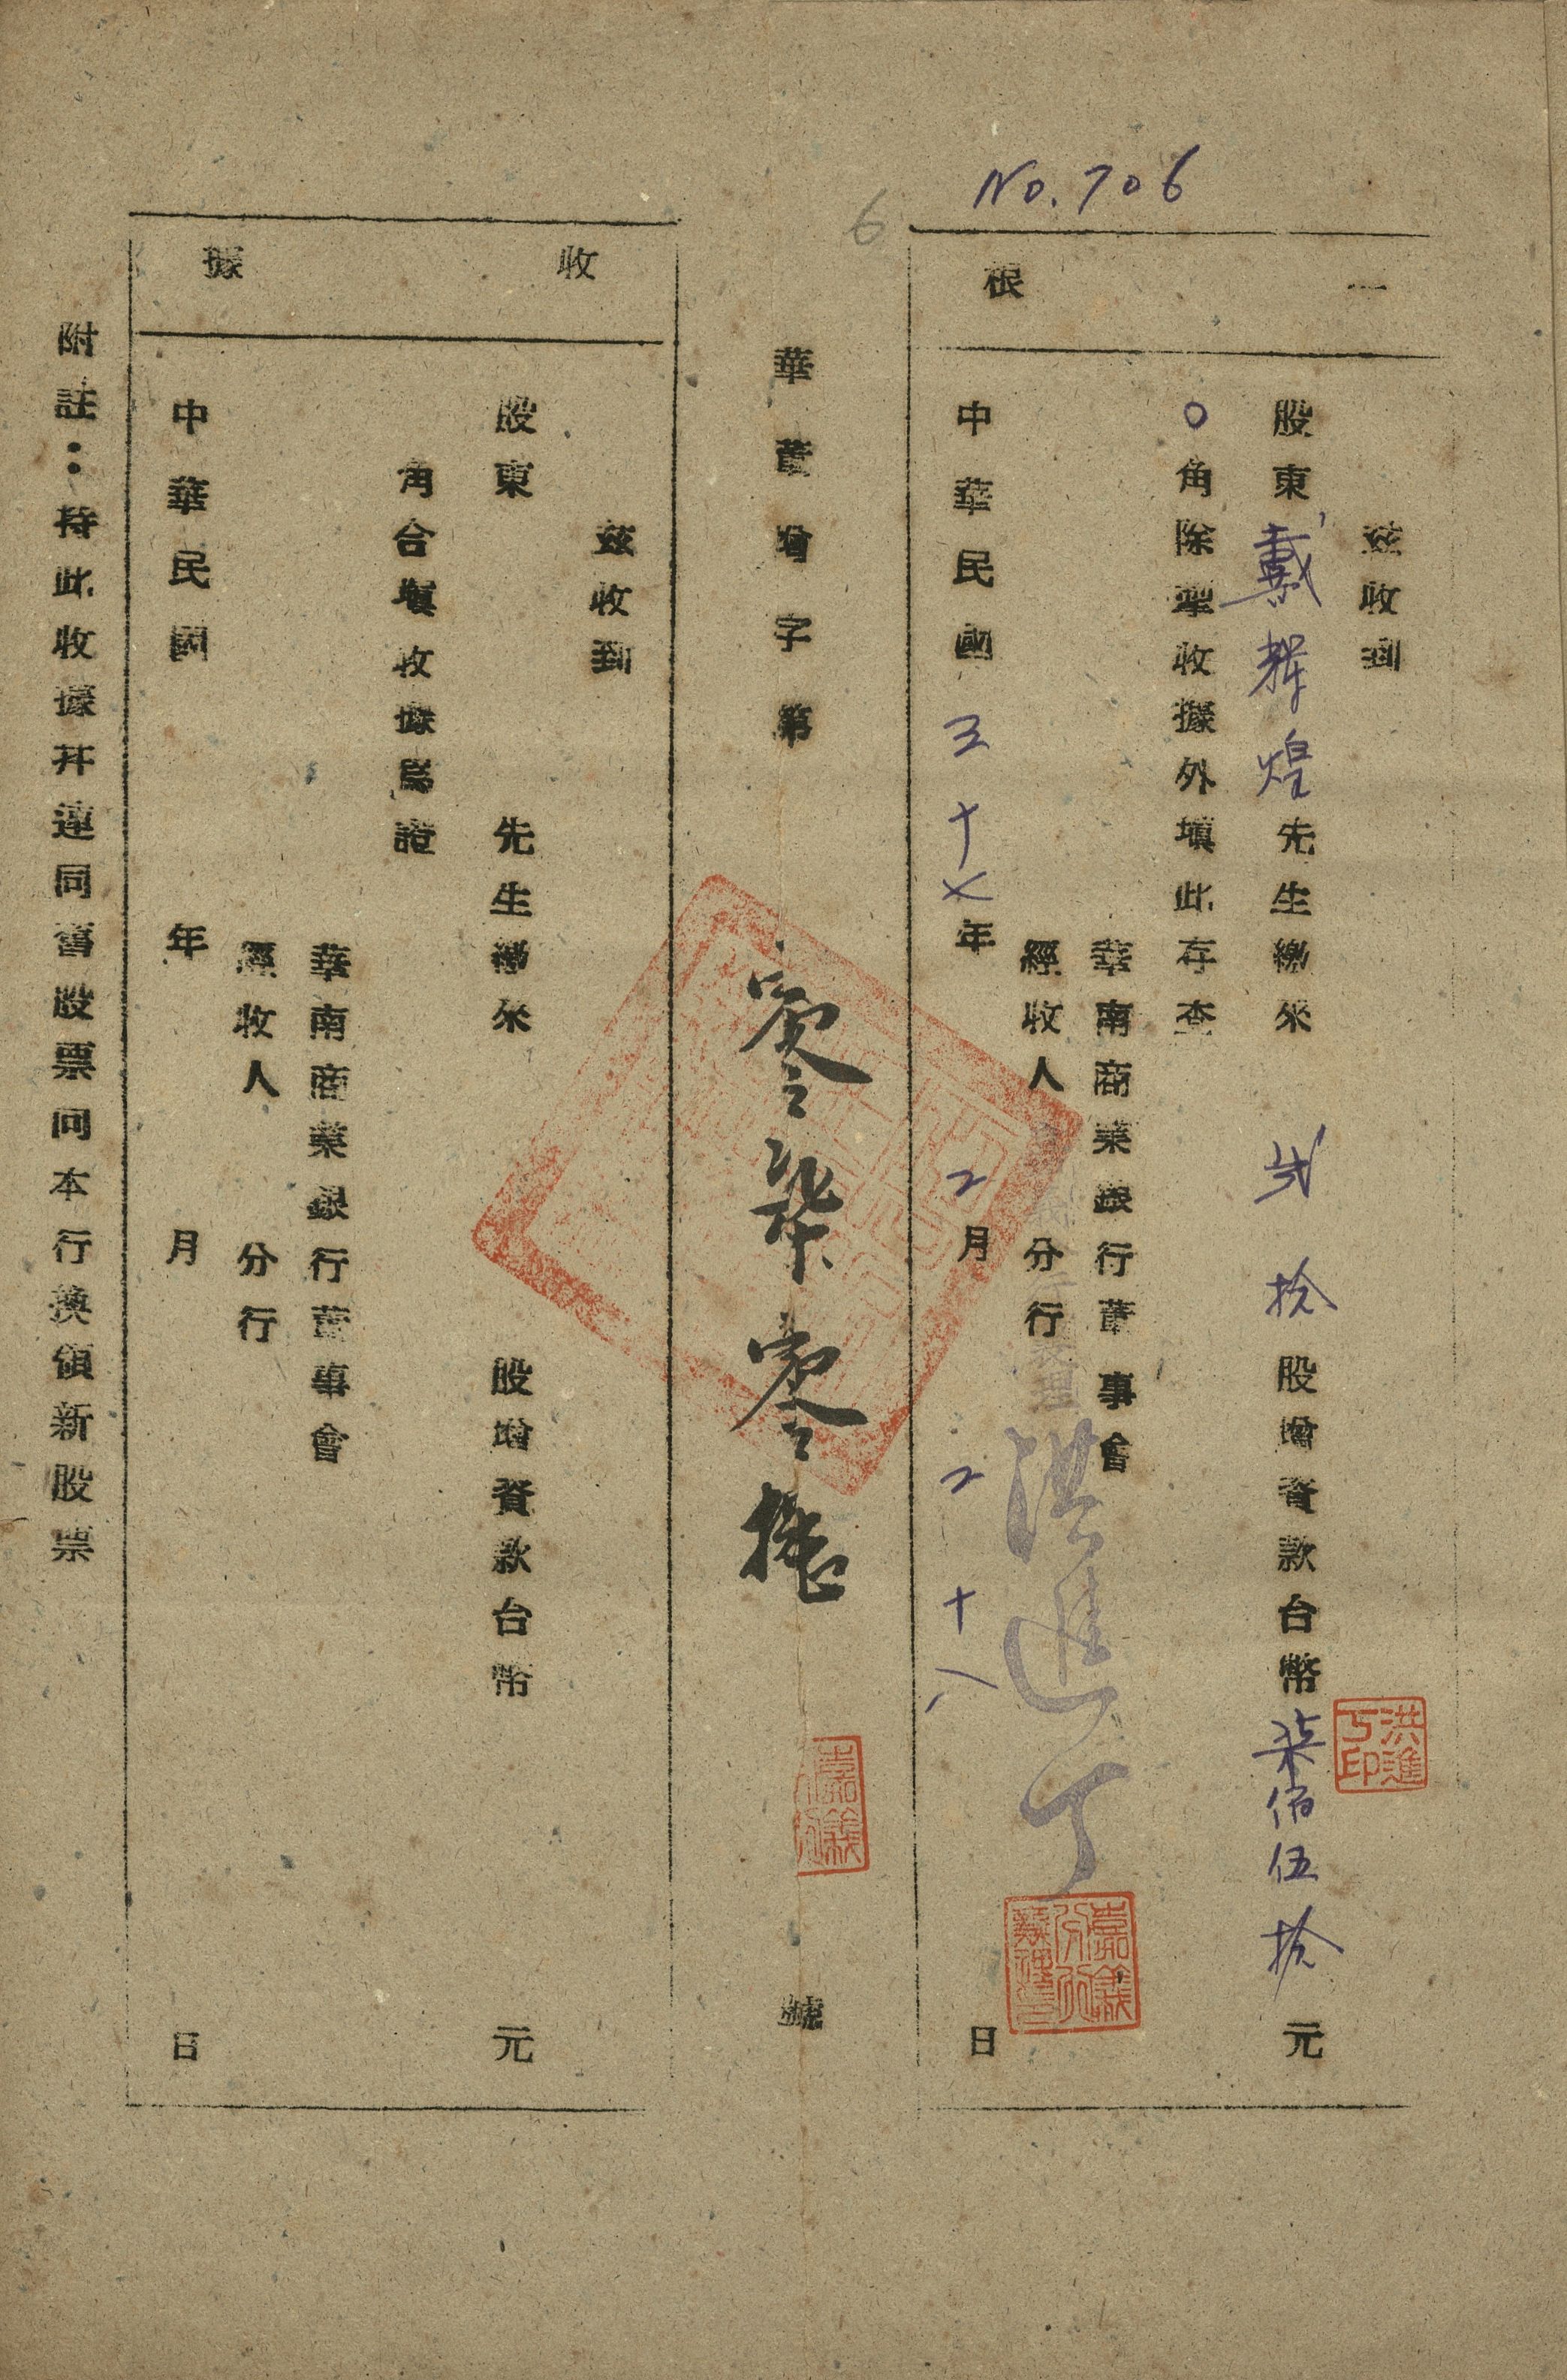 No. 706
6
一 根
茲收到
股東戴輝煌先生繳來 弍拾股增資款台幣柒佰伍拾元
0角除掣收據外填此存查
華南商業銀行董事會
經收人 分行 經理 洪進丁
中華民國三十乂年2月2十八日
洪進丁印
嘉義分行
華董增字第 零柒零 號
嘉義
收 據
茲收到
股東 先生繳來 股增資款台幣 元
角合填收據爲證
華南商業銀行董事會
經收人 分行
中華民國 年 月 日
附註：持此收據幷連同舊股票向本行換領新股票